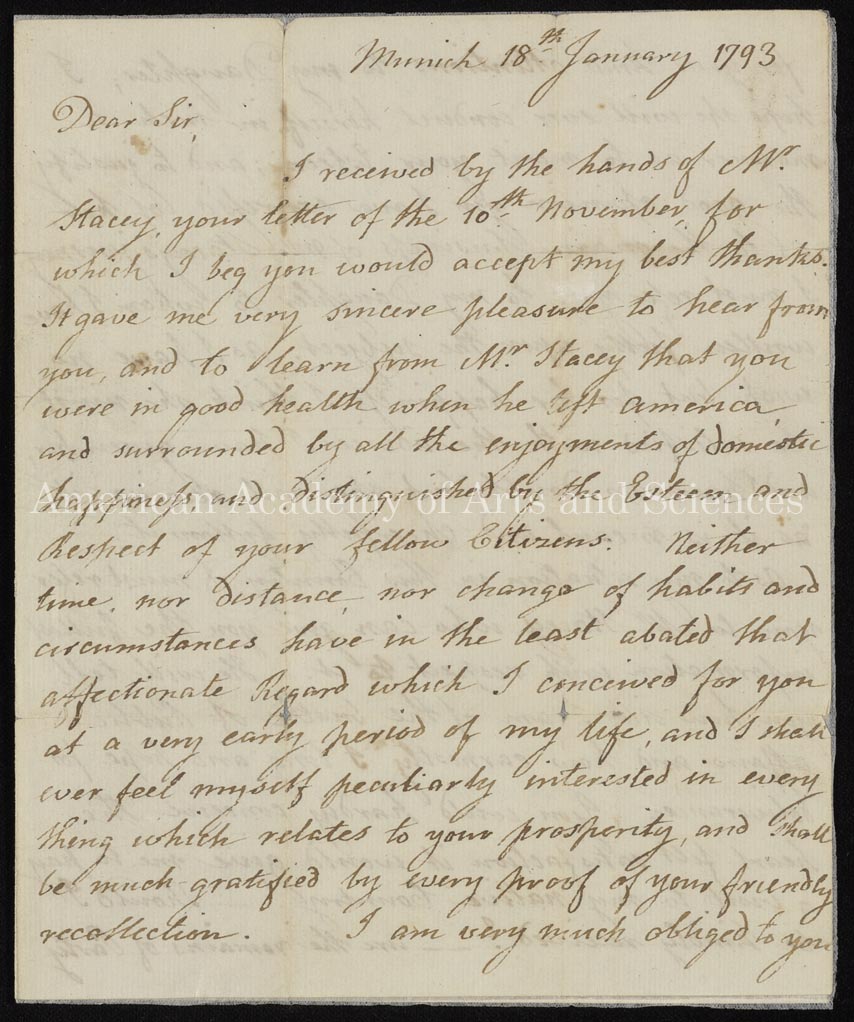 Munich 18th January 1793
Dear Sir,
I received by the hands of Mr
Stacey, your letter of the 10th November, for
which I beg you would accept my best thanks.
It gave me very sincere pleasure to hear from
you, and to learn from Mr Stacey that you
were in good health when he left America
and surrounded by all the enjoyments of domestic
happiness, and distinguished by the Esteem and
American Academy of Arts and Sciences
Respect of your fellow Citizens. Neither
time, nor distance, nor change of habits and
circumstances have in the least abated that
affectionate Regard which I conceived for you
at a very early period of my life, and I shall
ever feel myself peculiarly interested in every
thing which relates to your prosperity, and shall
be much gratified by every proof of your friendly
recollection. I am very much obliged to you